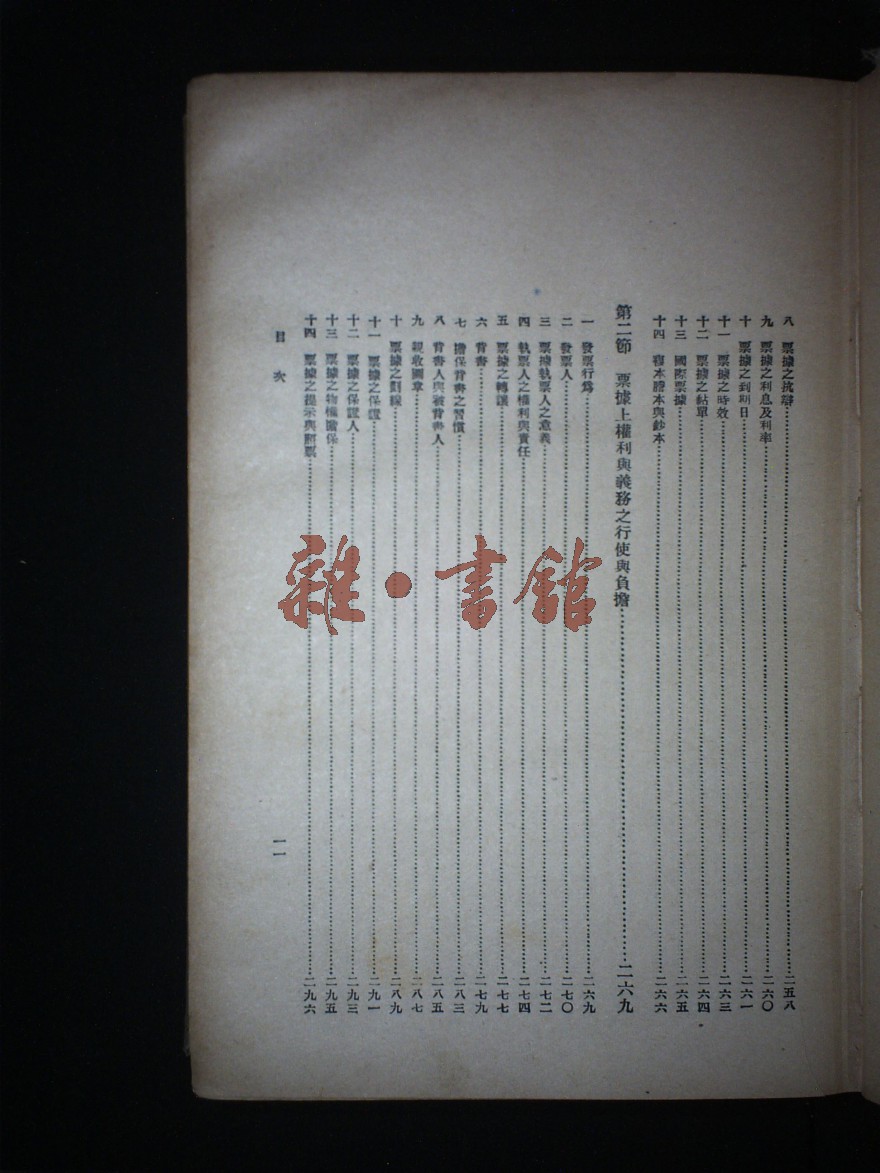 八 票據之抗辯……二五八
九 票據之利息及利率……二六〇
十 票據之到期日……二六一
十一 票據之時效……二六三
十二 票據之黏單……二六四
十三 國際票據……二六五
十四 複本謄本與鈔本……二六六
第二節 票據上權利與義務之行使與負擔……二六九
一 發票行為……二六九
二 發票人……二七〇
三 票據執票人之意義……二七二
四 執票人之權利與責任……二七四
五 票據之轉讓……二七七
六 背書……二七九
七 擔保背書之習慣……二八三
八 背書人與被背書人……二八五
九 親收圖章……二八七
十 票據之劃線……二八九
十一 票據之保證……二九一
十二 票據之保證人……二九三
十三 票據之物權擔保……二九五
十四 票據之提示與照票……二九六
目次
一一
雜·書館